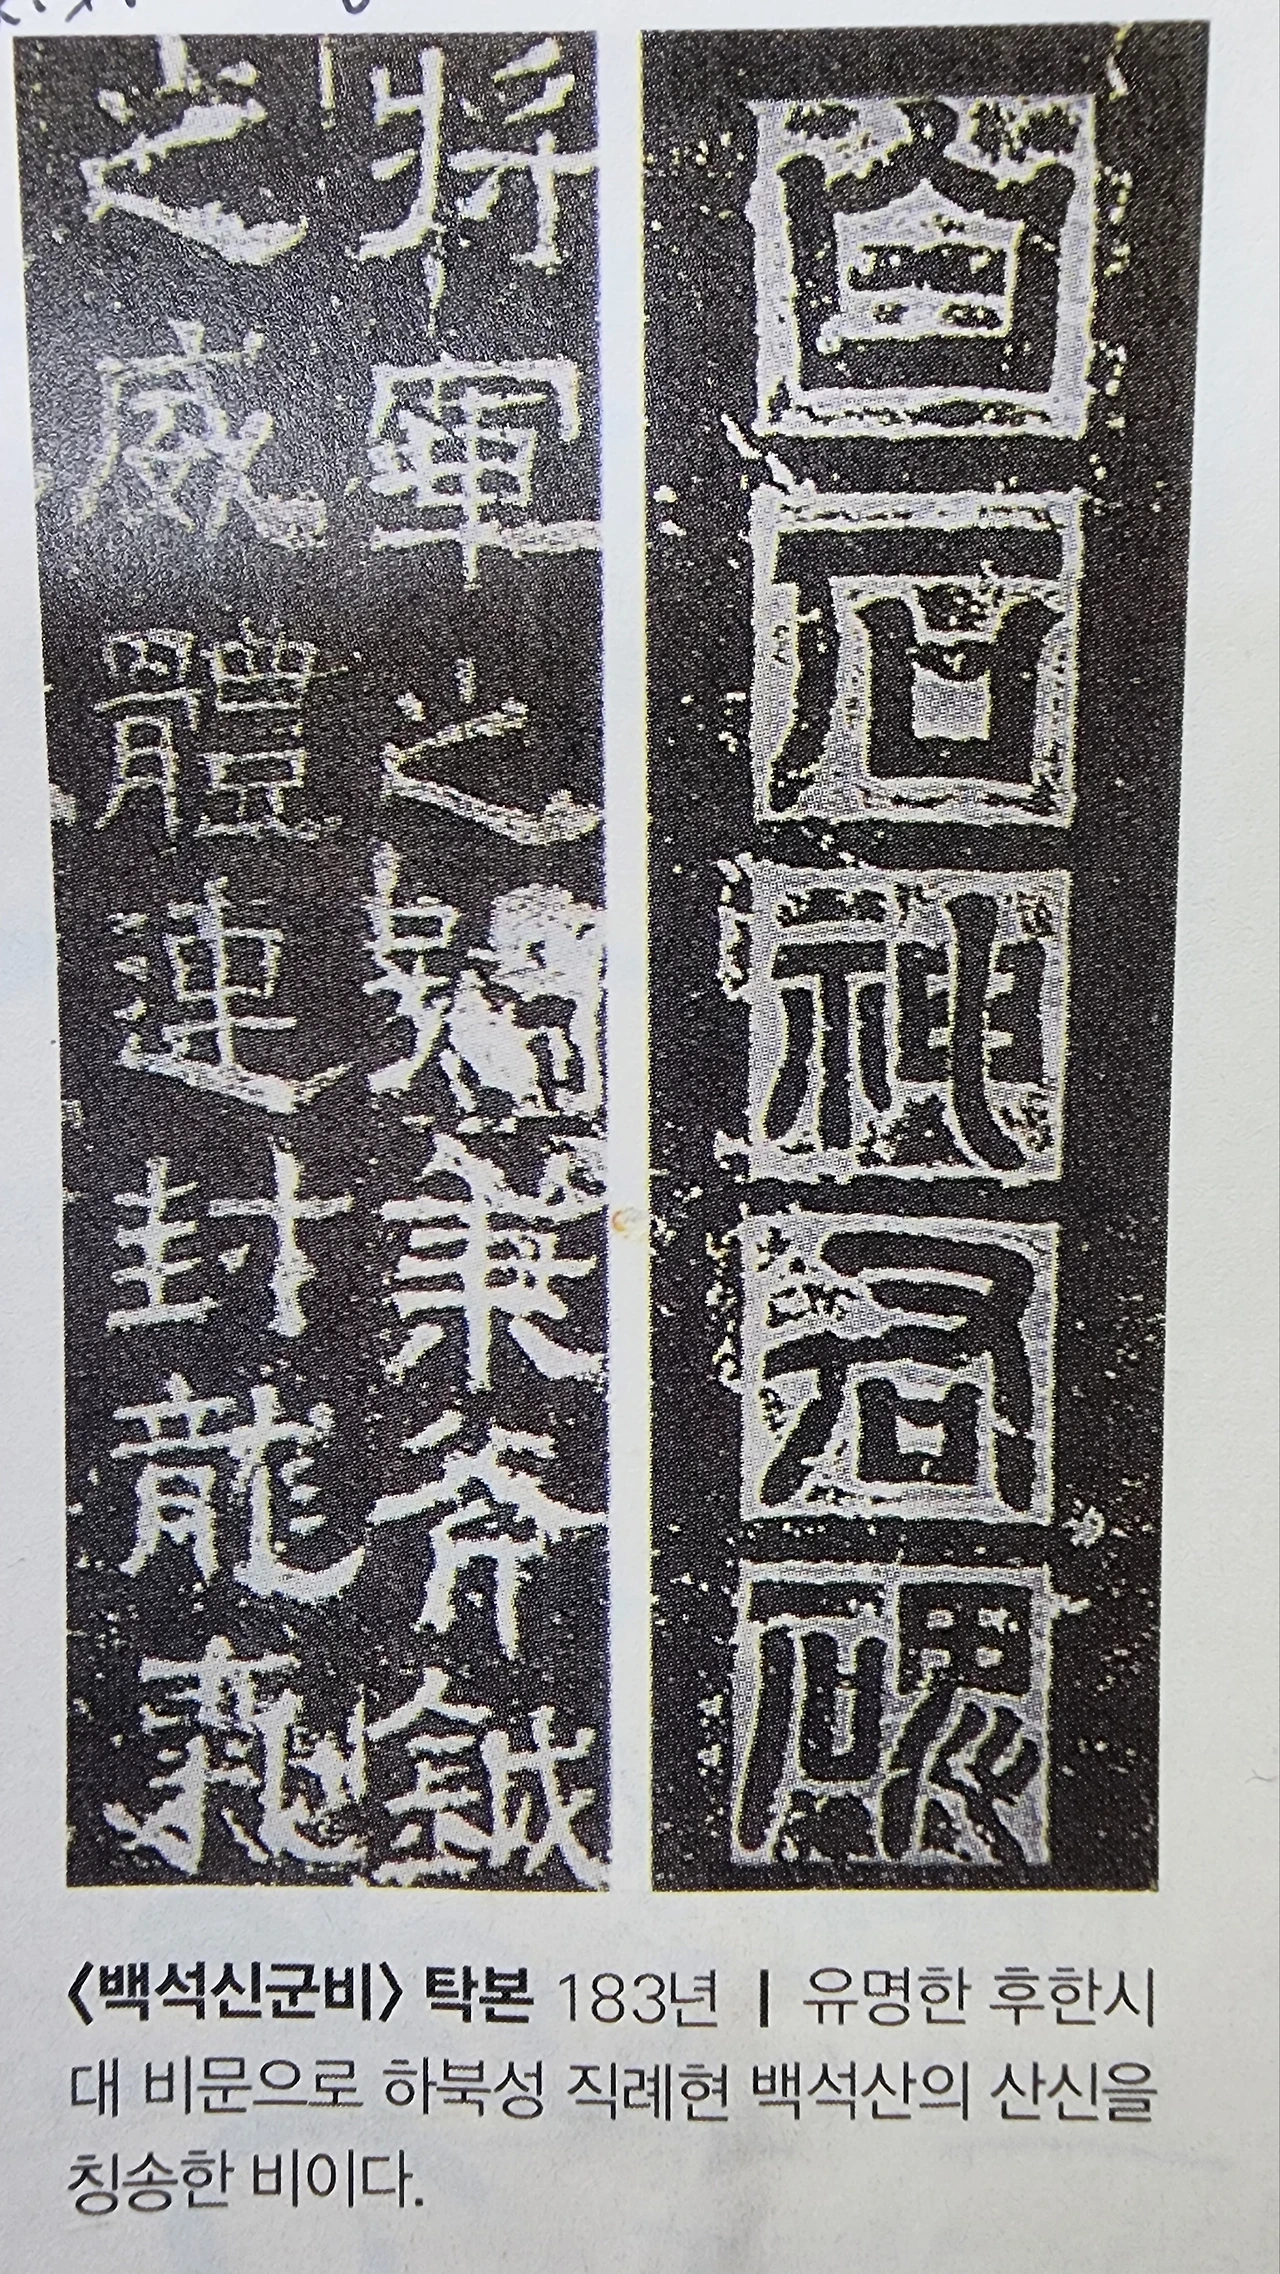 白石神君碑
將軍之號秉斧鉞
之威體連封龍氣
〈백석신군비〉 탁본 183년 | 유명한 후한시
대 비문으로 하북성 직례현 백석산의 산신을
칭송한 비이다.